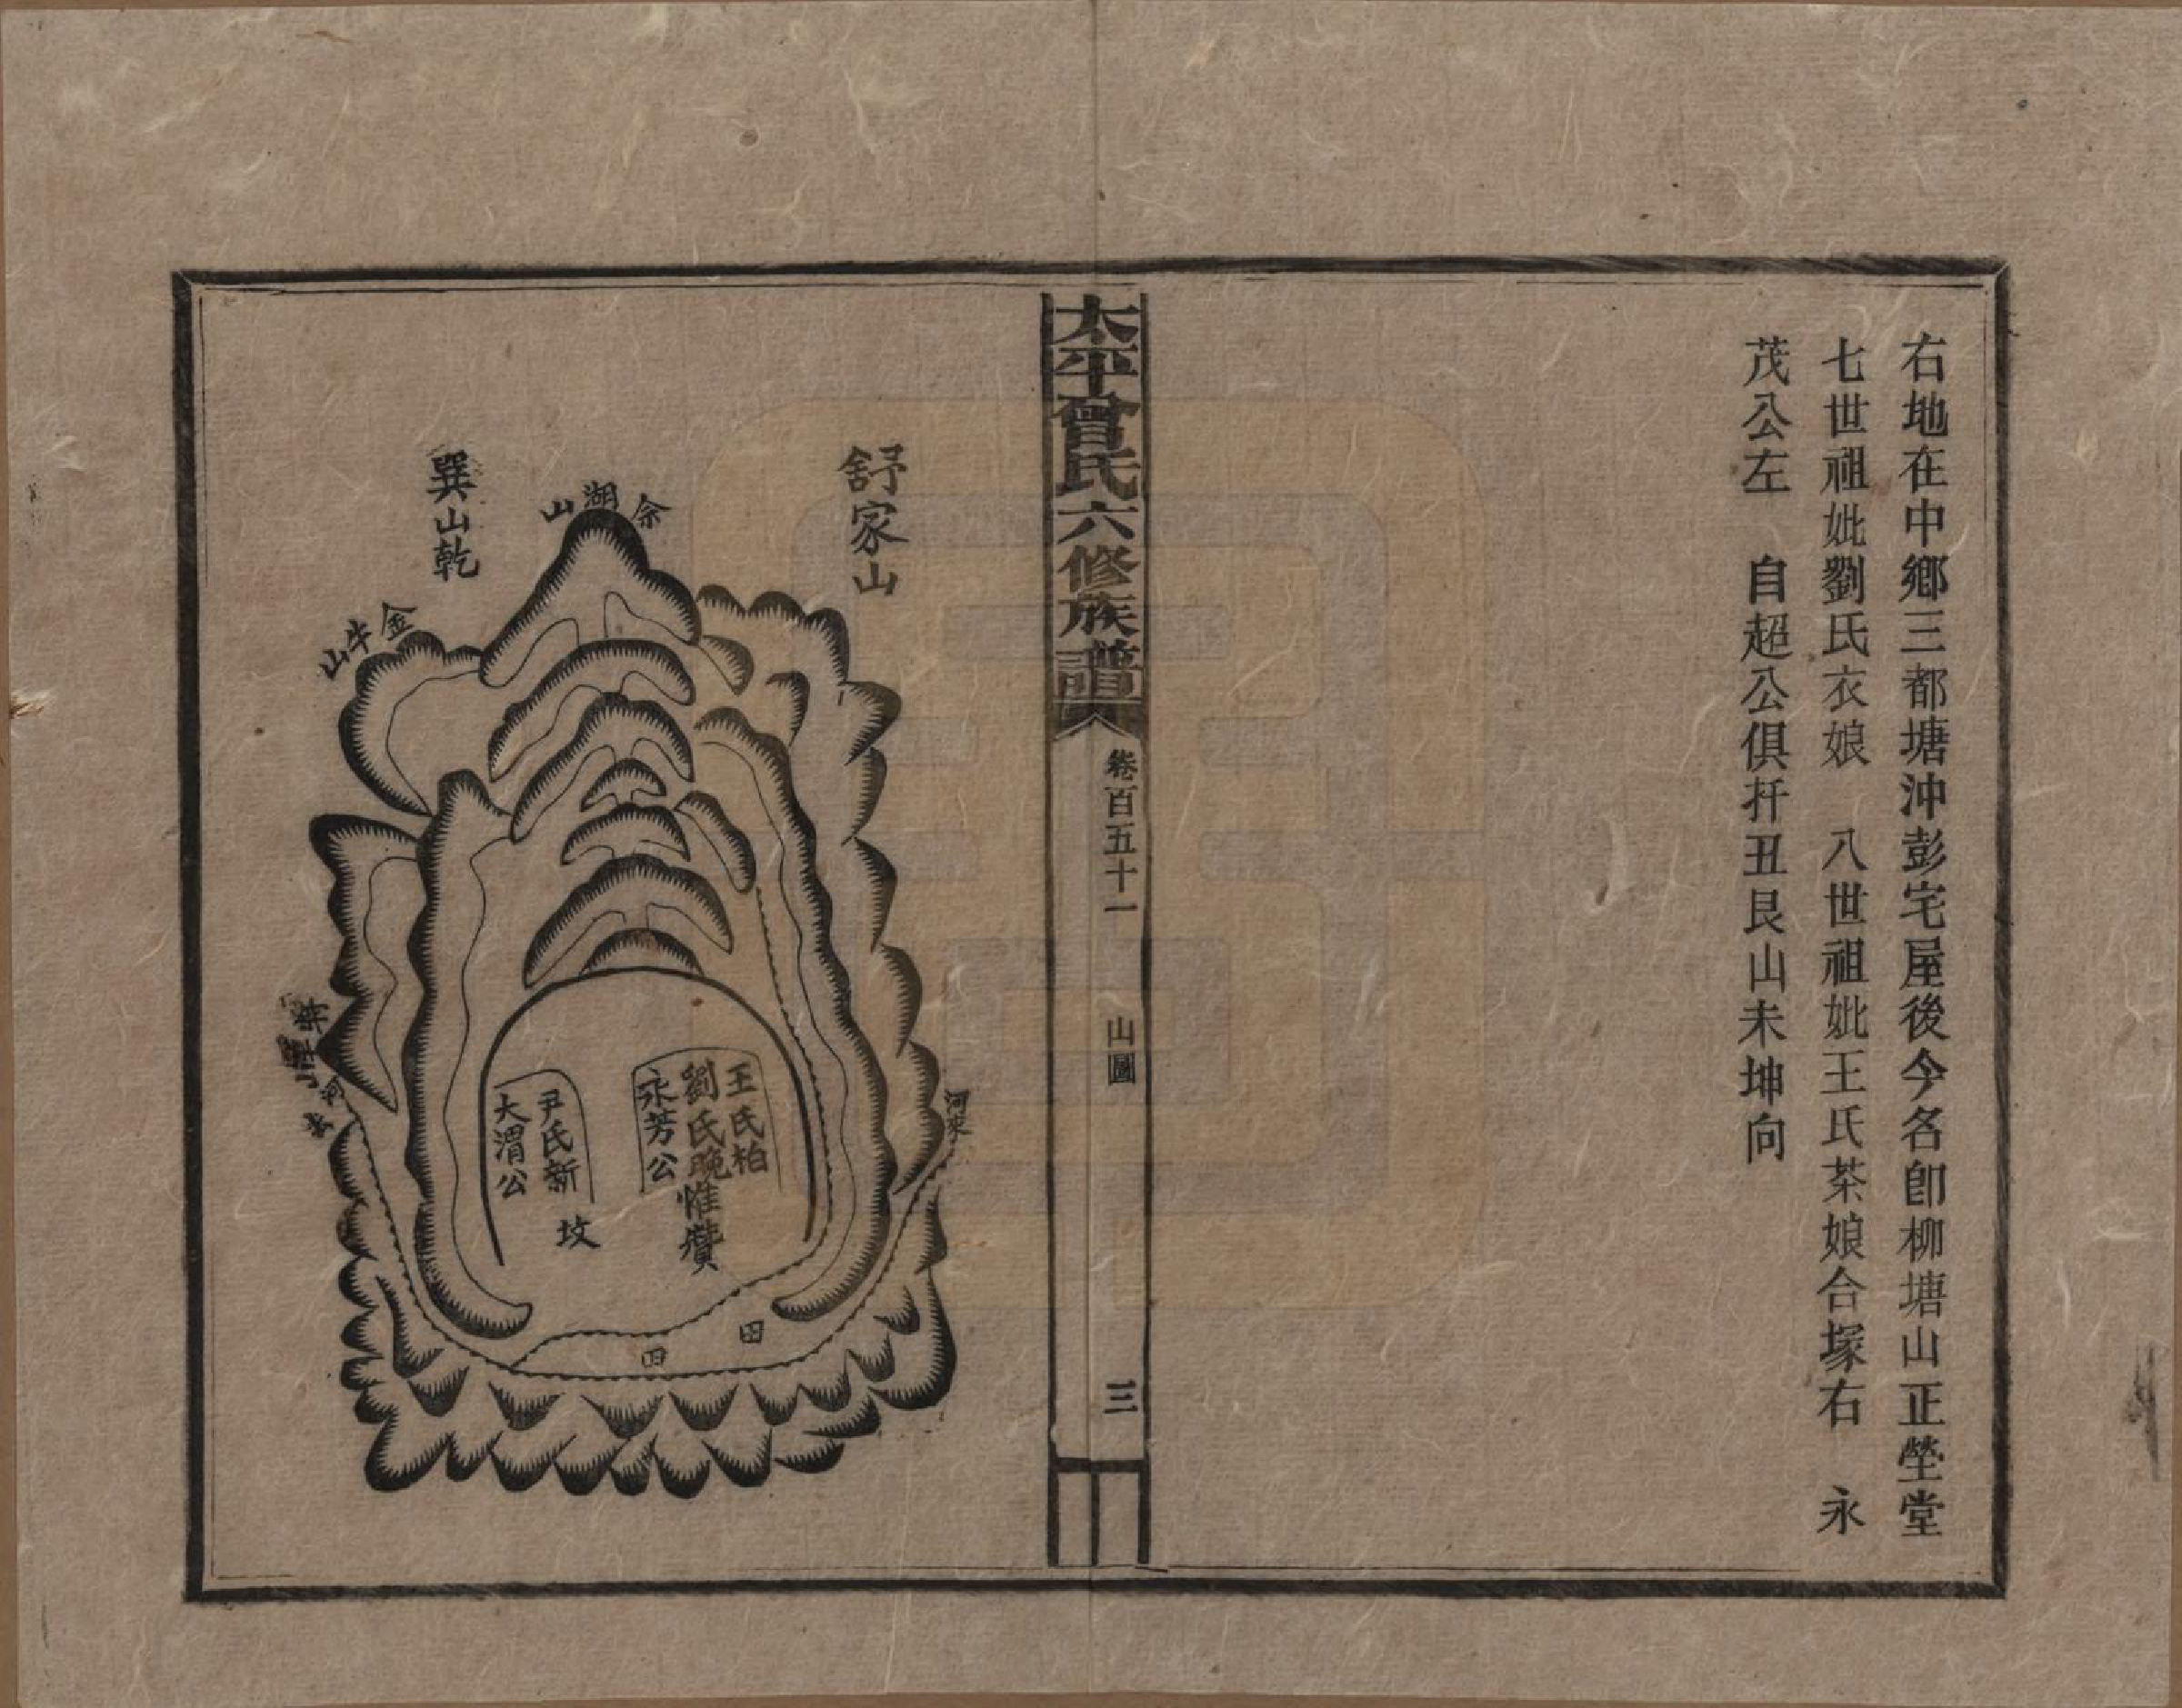 右地在中鄉三都塘沖彭宅屋後今名卽柳塘山正塋堂
七世祖妣劉氏衣娘　八世祖妣王氏茶娘合塚右　永
茂公左　自超公俱扦丑艮山未坤向
太平曾氏六修族譜
卷百五十一
山圖
三
舒家山
佘湖山
巽山乾
金牛山
河來
河去
王氏柏
劉氏晚
永芳公
惟贊
尹氏新
大渭公
坟
田
田